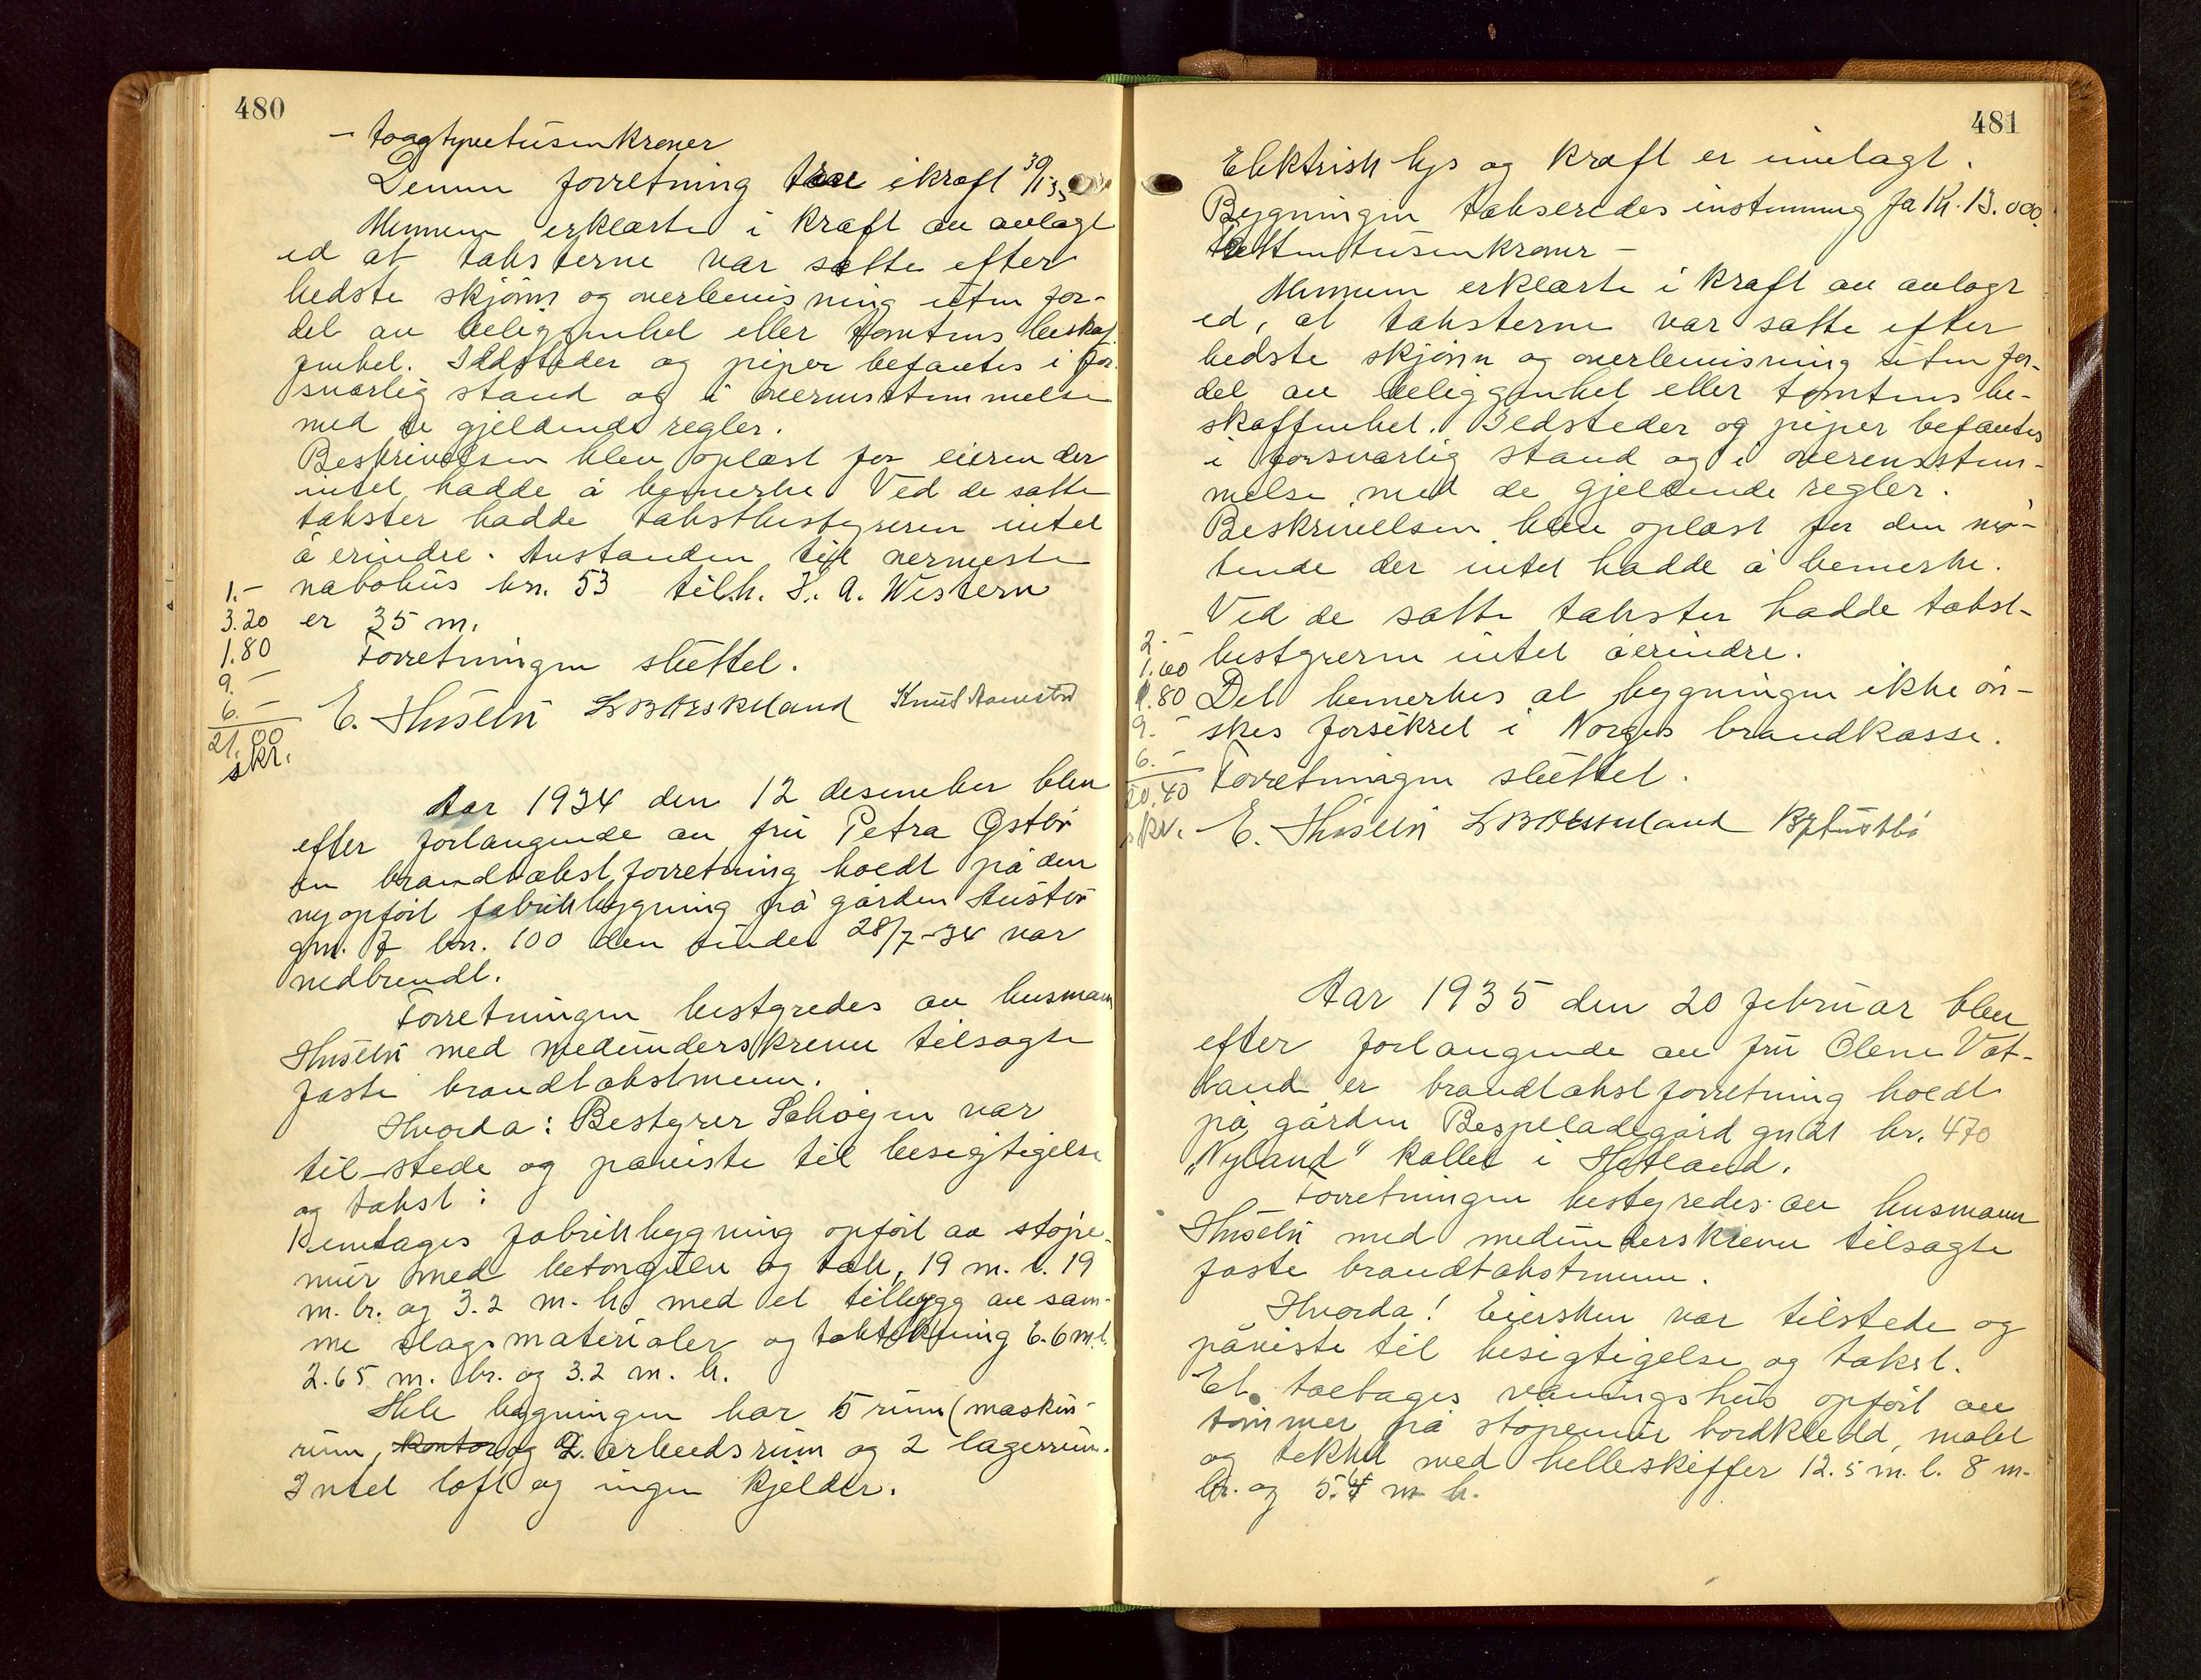 480
- toogtyvetusenkroner
Denne forretning træe ikraft 30/1 35
Mennene erklærte i kraft av avlagt
ed at taksterne var satte efter
bedste skjønn og overbevisning uten for-
del av beliggenhet eller tomtens beskaf
fenhet. Ildsteder og piper befantes i for-
svarlig stand og i overensstemmelse
med de gjeldende regler.
Beskrivelsen blev oplæst for eieren der
intet hadde å bemerke Ved de satte
takster hadde takstbestyreren intet
å erindre. Avstanden til nermeste
1.- nabohus bn. 53 tilh. I. A. Western
3.20 er 35 m.
1.80 Forretningen sluttet.
9. -
6. - E. Husebø
21.00
skr.
Aar 1934 den 12 desember blev
efter forlangende av fru Petra Østbø
en brandtakstforretning hoedt på den
nyopført fabrikkbygning på gården Austbø
gn. 7 bn. 100 den sindes 28/7-34 var
nedbrendt.
Forretningen bestyredes av husmann
Husebø med medunderskrevne tilsagte
faste brandtakstmenn.
Hvorda: Bestyrer Schøyen var
tilstede og påviste til besigtigelse
og takst:
1 enetages fabrikkbygning opført av støpe-
mur med betongulv og tak, 19 m. l. 19
m. br. og 3.2 m. h. med et tilbygg av sam-
me slags materialer og taktekning 6.6 m. l.
2.65 m. br. og 3.2 m. h.
Hele bygningen har 5 rum (maskin-
rum, kontor og 2 arbeidsrum og 2 lagerrum.
Intet loft og ingen kjelder.
481
Elektrisk lys og kraft er innlagt.
Bygningen takseredes instemmig fa Kr. 13.000.
trettentusenkroner -
Mennene erklærte i kraft av avlagt
ed, at taksterne var satte efter
bedste skjønn og overbevisning uten for-
del av beliggenhet eller tomtens be-
skaffenhet. Ildsteder og piper befantes
i forsvarlig stand og i overensstem-
melse med de gjeldende regler.
Beskrivelsen blev oplæst for den mø-
tende der intet hadde å bemerke.
Ved de satte takster hadde takst-
2.-
1.60 bestyreren intet å erindre.
1.80 Det bemerkes at bygningen ikke øn-
9.- skes forsikret i Norges brandkasse.
6.- Forretningen sluttet.
20.40
skr. E. Husebø
Aar 1935 den 20 februar blev
efter forlangende av fru Olene Vat-
land er brandtakstforretning hoedt
på gården Bespeladegård gn 21 br. 470
"Nyland" kallet i Hetland.
Forretningen bestyredes av husmann
Husebø med medunderskrevne tilsagte
faste brandtakstmenn.
Hvorda! Eiersken var tilstede og
påviste til besigtigelse og takst.
Et toetages våningshus opført av
tømmer på støpemur bordkledd, malet
og tekket med helleskiffer 12.5 m. l. 8 m.
br. og 5.4 m h.